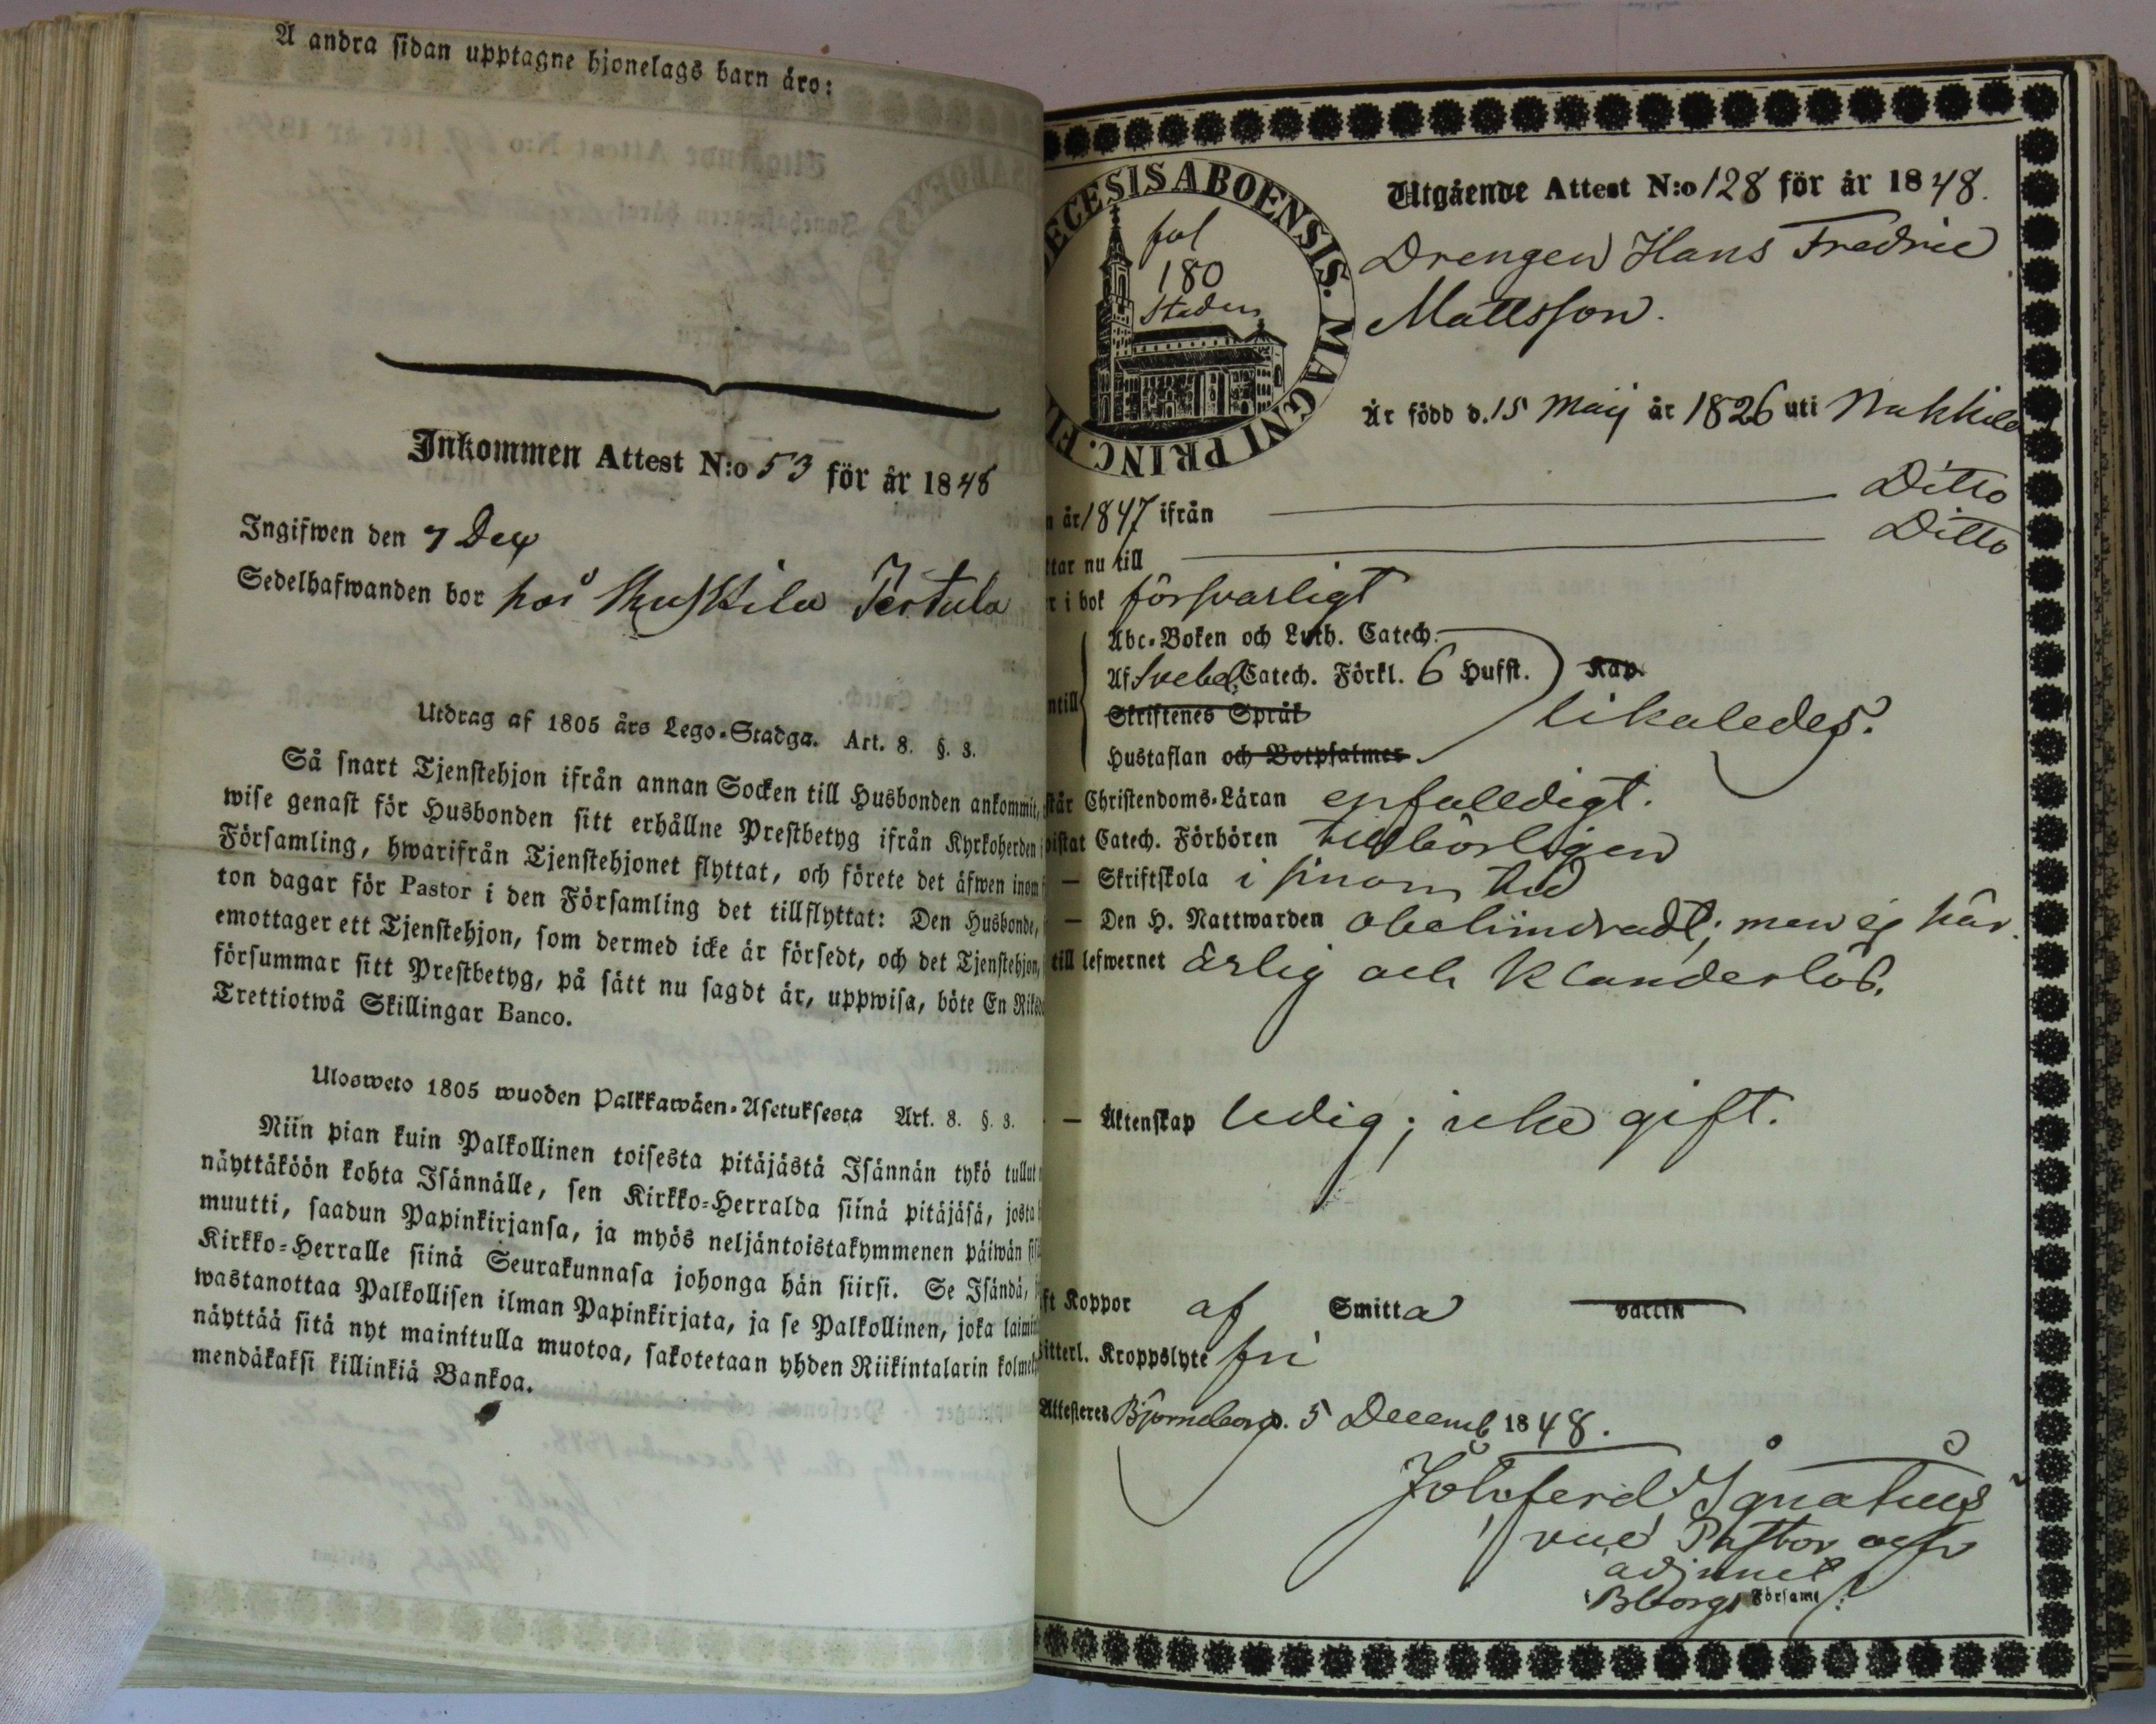 A andra sidan upptagne hjonelags barn äro:
Inkommen Attest N:o 53 för år 1848
Ingifwen den 7 Dec
Sedelhafwanden bor hos
Utdrag af 1805 års Lego-Stadga. Art. 8. §. 3.
Så snart Tjenstehjon ifrån annan Socken till Husbonden ankommit,
wise genast för Husbonden sitt erhållne Prestbetyg ifrån Kyrkoherden
Församling, hwarifrån Tjenstehjonet flyttat, och förete det äfwen inom
ton dagar för Pastor i den Församling det tillflyttat: Den Husbonde,
emottager ett Tjenstehjon, som dermed icke är försedt, och det Tjenstehjon,
försummar sitt Prestbetyg, på sätt nu sagdt är, uppwisa, böte En Riksd
Trettiotwå Skillingar Banco.
Ulosweto 1805 wuoden Palkkawäen-Asetuksesta Art. 8. §. 3.
Niin pian kuin Palkollinen toisesta pitäjästä Isännän tykö tullut
näyttäköön kohta Isännälle, sen Kirkko-Herralda siinä pitäjäsä, josta
muutti, saadun Papinkirjansa, ja myös neljäntoistakymmenen päiwän sis
Kirkko-Herralle siinä Seurakunnasa johonga hän siirsi. Se Isändä,
wastanottaa Palkollisen ilman Papinkirjata, ja se Palkollinen, joka laimin
näyttää sitä nyt mainitulla muotoa, sakotetaan yhden Riikintalarin kolme
mendäkaksi killinkiä Bankoa.
ECESIS ABOENSIS. MAGNI PRINC. FI
fol
180
Staden
Utgående Attest N:o 128 för år 1848.
Drengen Hans Fredric
Mattsson.
Är född d. 15 Maij år 1826 uti Nakkila
n år 1847 ifrån Ditto
ttar nu till Ditto
r i bok försvarligt
Abc-Boken och Luth. Catech.
Af Svebel. Catech. Förkl. 6 Hufst. Kap.
ntill Skriftenes Språk likaledes.
Hustaflan och Botpsalmer
står Christendoms-Läran enfalldigt.
wistat Catech. Förhören tillbörligen
— Skriftskola i sinom tid
— Den H. Nattwarden obehindradt; men ej här.
till lefwernet ärlig och klanderlös.
— Äktenskap ledig; icke gift.
ft Koppor af Smitta Vaccin
sitterl. Kroppslyte fri
Attesteres Björneborg d. 5 Decemb 1848.
Joh. Ferd. Ignatius
vice Pastor och
adjunct
i Bborgs Församl.